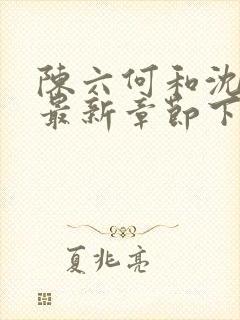 陈六何和沈
最新章节下
夏兆亮